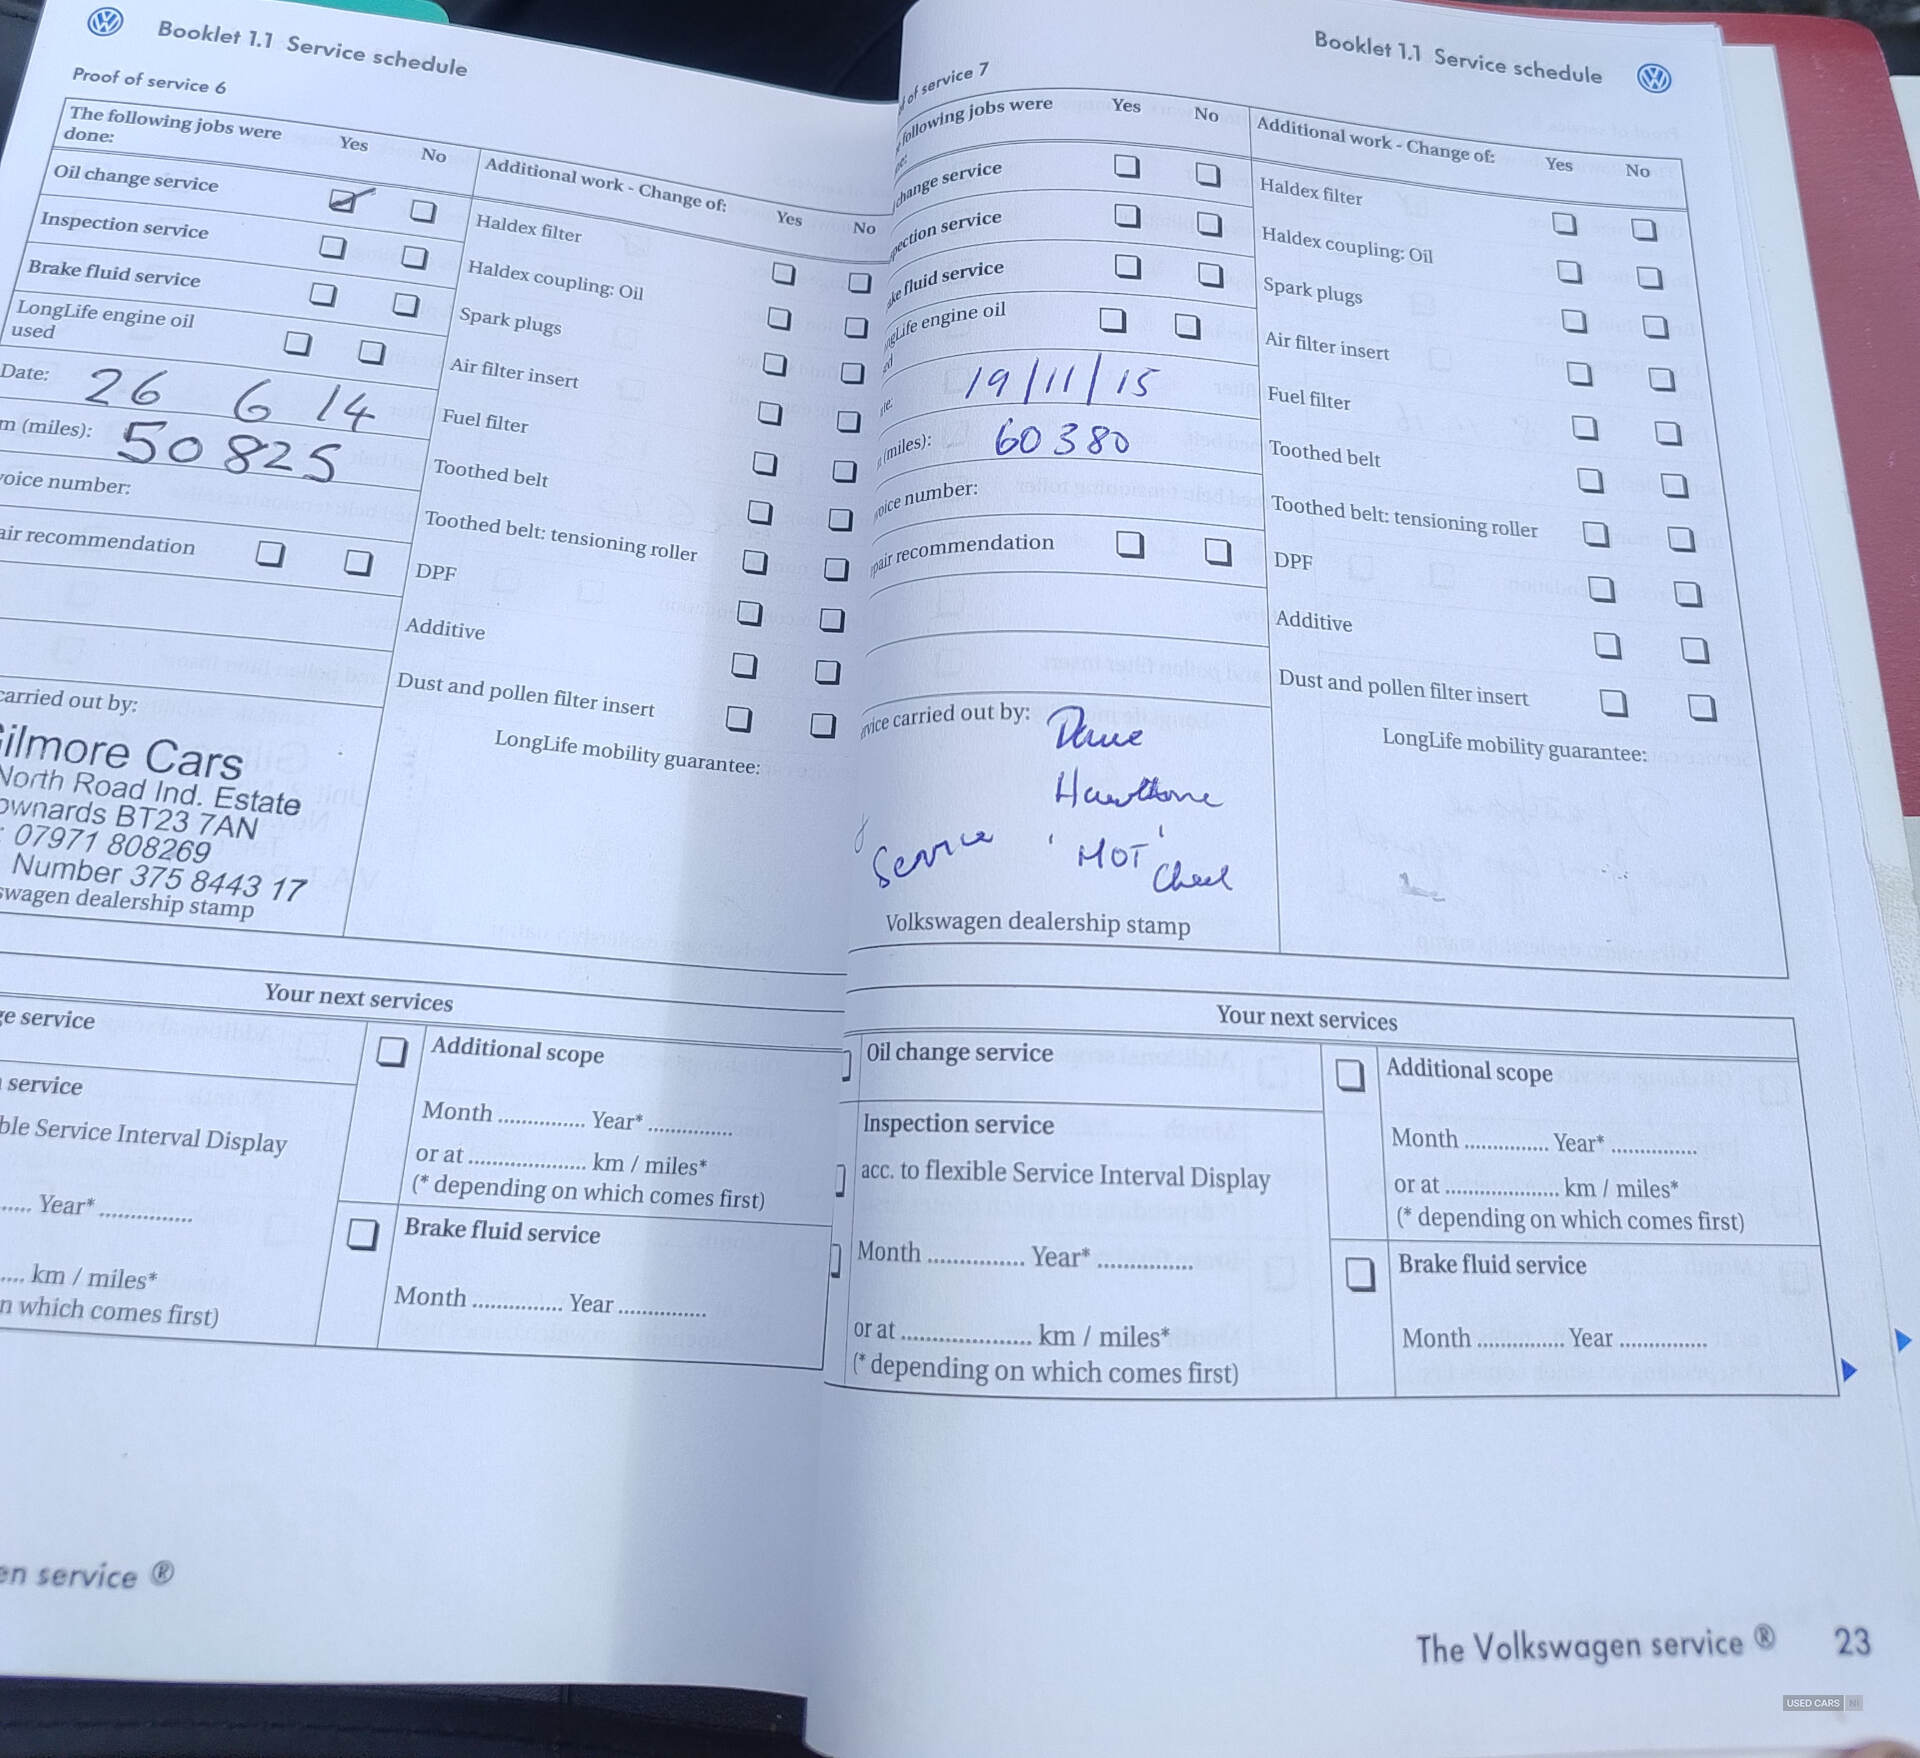 Booklet 1.1 Service schedule
Proof of service 6
The following jobs were done: Yes No
Oil change service
Inspection service
Brake fluid service
LongLife engine oil used
Date: 26 6 14
m (miles): 50825
voice number:
air recommendation
carried out by:
Gilmore Cars
North Road Ind. Estate
ownards BT23 7AN
: 07971 808269
Number 375 8443 17
swagen dealership stamp
Additional work - Change of: Yes No
Haldex filter
Haldex coupling: Oil
Spark plugs
Air filter insert
Fuel filter
Toothed belt
Toothed belt: tensioning roller
DPF
Additive
Dust and pollen filter insert
LongLife mobility guarantee:
Your next services
ge service
service
ble Service Interval Display
..... Year* ...............
.... km / miles*
n which comes first)
Additional scope
Month .............. Year* ..............
or at .................... km / miles*
(* depending on which comes first)
Brake fluid service
Month ............... Year ...............
en service ®
Booklet 1.1 Service schedule
of service 7
following jobs were Yes No
change service
pection service
ke fluid service
ngLife engine oil
19/11/15
(miles): 60380
voice number:
pair recommendation
rvice carried out by: Dave
Hawthorne
Service 'MOT' Check
Volkswagen dealership stamp
Additional work - Change of: Yes No
Haldex filter
Haldex coupling: Oil
Spark plugs
Air filter insert
Fuel filter
Toothed belt
Toothed belt: tensioning roller
DPF
Additive
Dust and pollen filter insert
LongLife mobility guarantee:
Your next services
Oil change service
Inspection service
acc. to flexible Service Interval Display
Month ............... Year* ...............
or at .................... km / miles*
(* depending on which comes first)
Additional scope
Month .............. Year* ..............
or at .................... km / miles*
(* depending on which comes first)
Brake fluid service
Month ............... Year ...............
The Volkswagen service ® 23
USED CARS NI